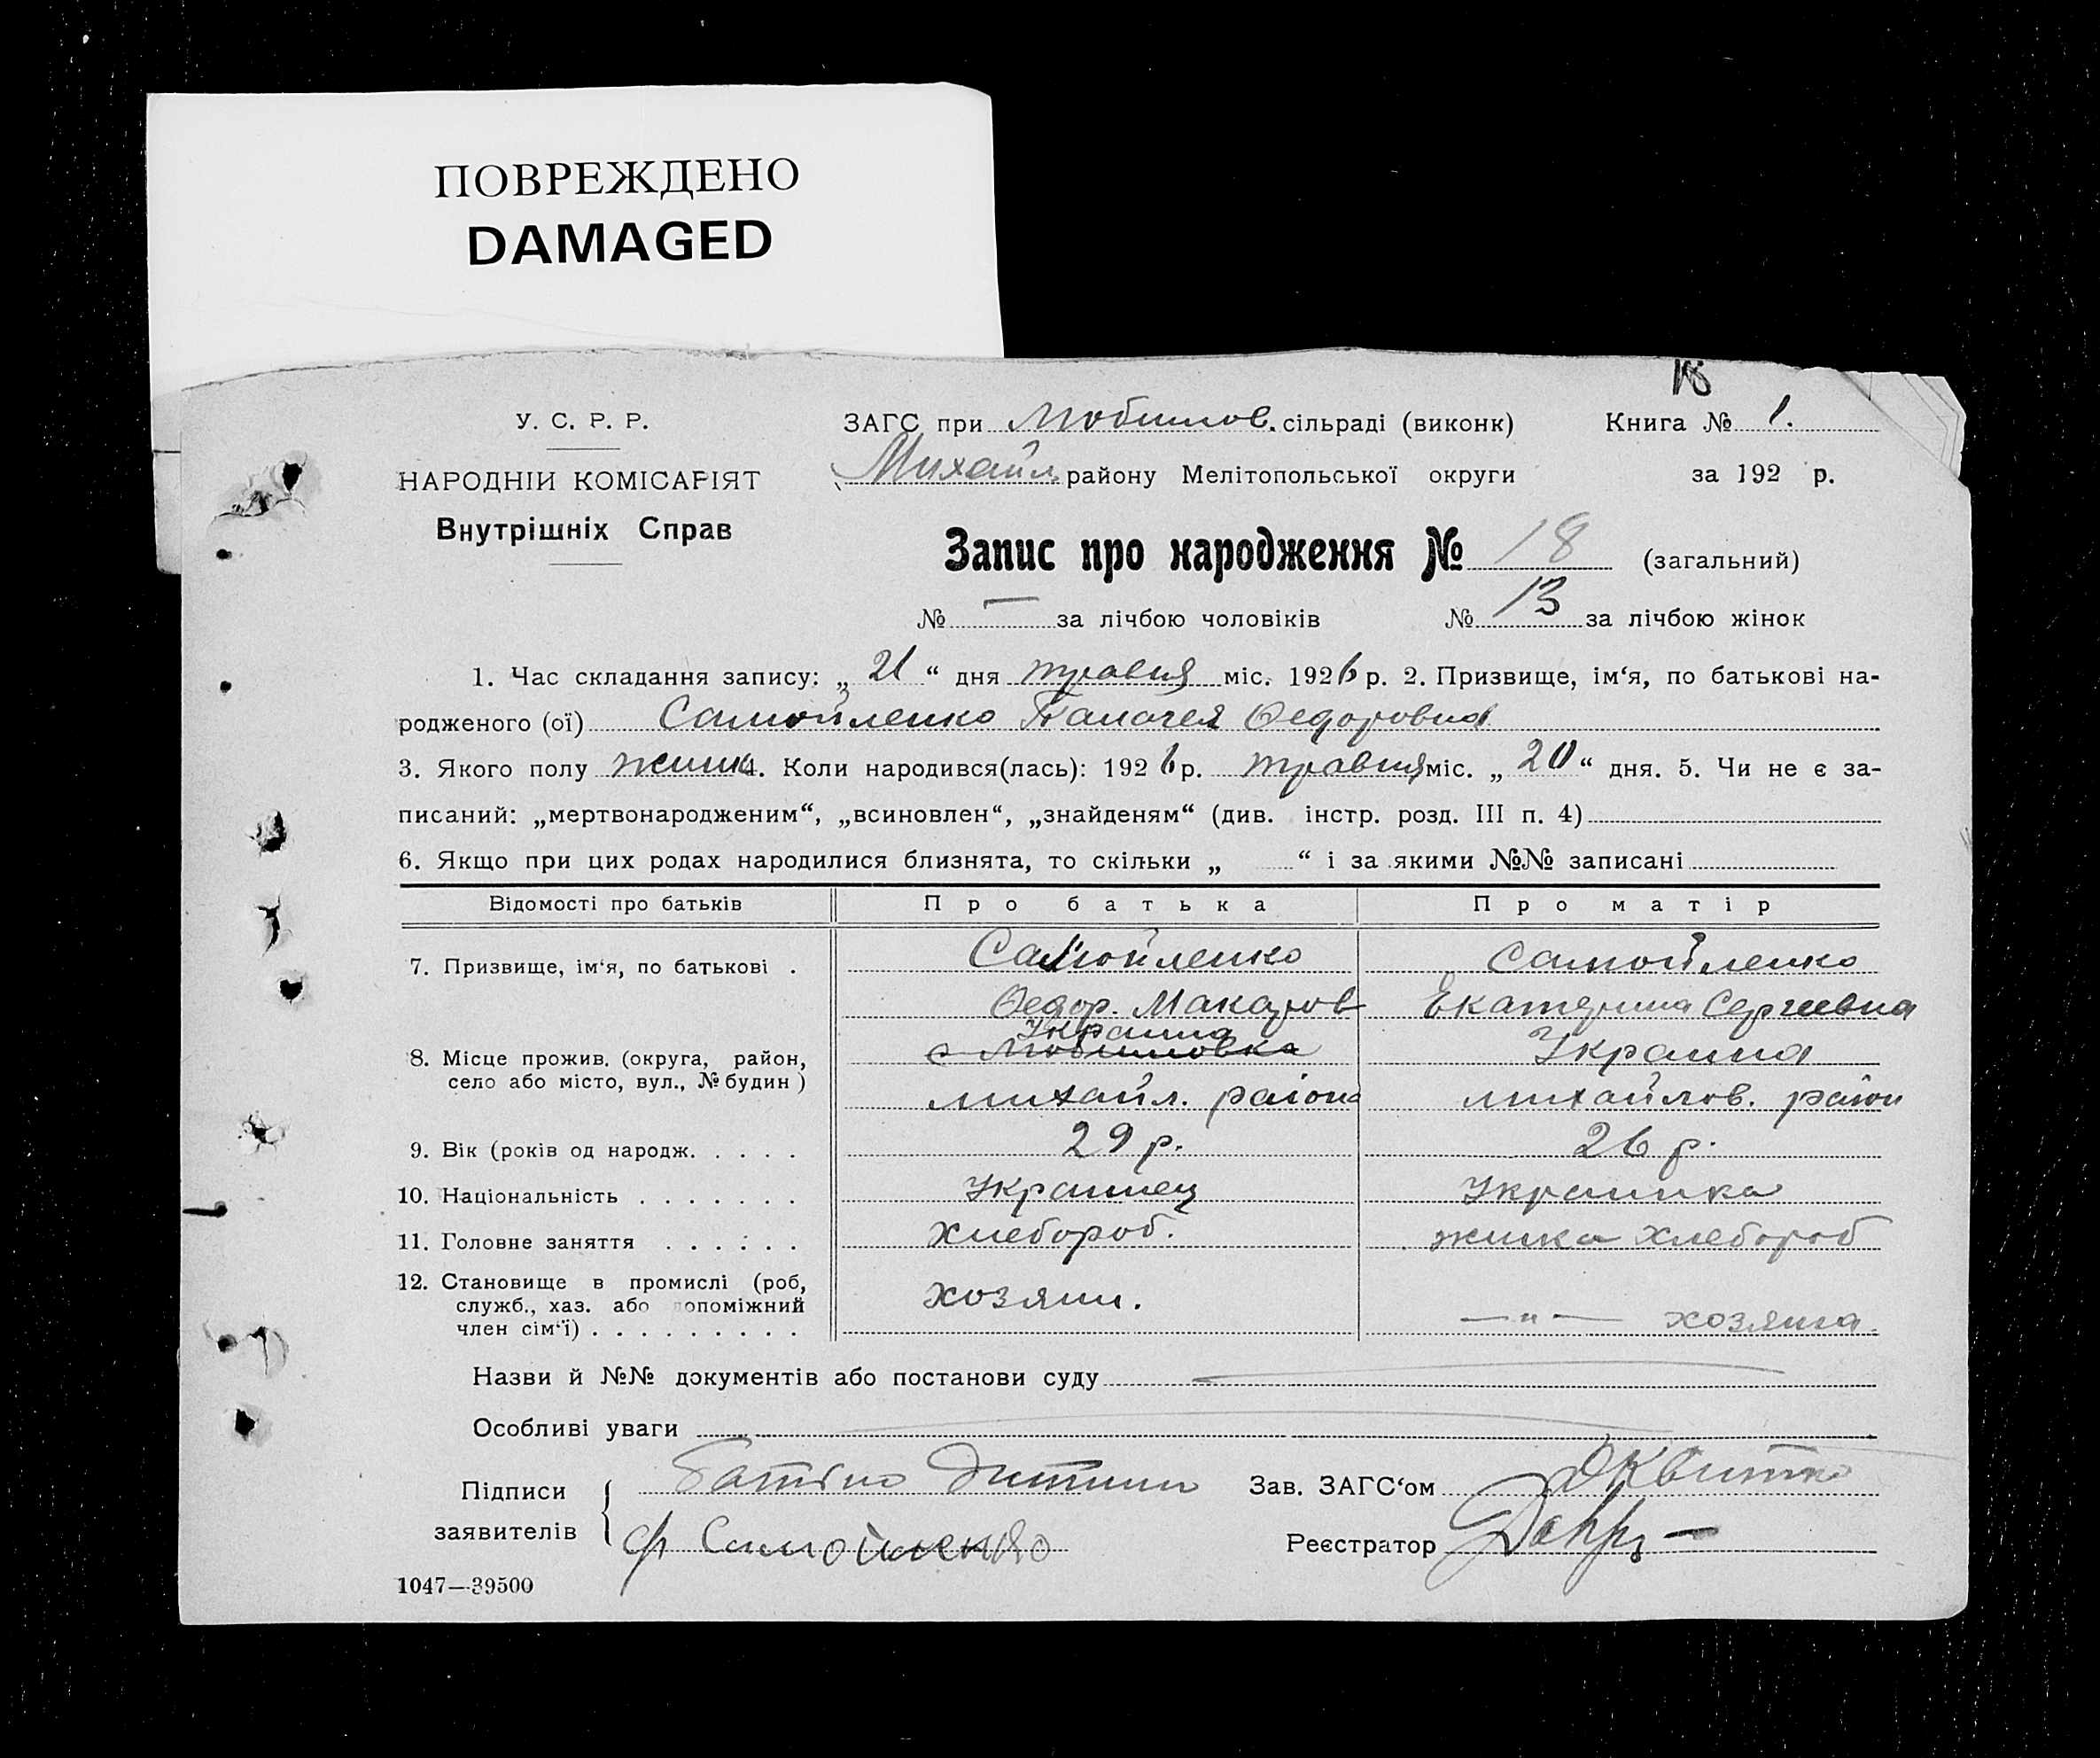 ПОВРЕЖДЕНО
DAMAGED
18
У. С. Р. Р.
НАРОДНІЙ КОМІСАРІЯТ
Внутрішніх Справ
ЗАГС при Любимов. сільраді (виконк)
Книга № 1.
Михайл. району Мелітопольської округи
за 192 р.
Запис про народження № 18 (загальний)
№ — за лічбою чоловіків № 13 за лічбою жінок
1. Час складання запису: „ 21 “ дня травня міс. 1926 р. 2. Призвище, ім‘я, по батькові на-
родженого (ої) Самойленко Федоровна
3. Якого полу жінк 4. Коли народився(лась): 1926 р. травня міс. „ 20 “ дня. 5. Чи не є за-
писаний: „мертвонародженим“, „всиновлен“, „знайденям“ (див. інстр. розд. III п. 4)
6. Якщо при цих родах народилися близнята, то скільки „ “ і за якими №№ записані
Відомості про батьків
Про батька
Про матір
7. Призвище, ім‘я, по батькові .
Самойленко
Федор. Макаров
Самойленко
Екатерина Сергеевна
8. Місце прожив. (округа, район,
село або місто, вул., № будин )
Украина
с Любимовка
михайл. района
Украина
михайлов. район
9. Вік (років од народж. . . . .
29 р.
26 р.
10. Національність . . . . . . .
Украинец
Украинка
11. Головне заняття . . . . . .
хлебороб.
жинка хлебороб
12. Становище в промислі (роб,
служб., хаз. або допоміжний
член сім‘ї) . . . . . . . . .
хозяин.
—"— хозяина.
Назви й №№ документів або постанови суду
Особливі уваги
Підписи
заявителів
Батько дитини
Ф Самойленко
Зав. ЗАГС‘ом Квитко
Реєстратор
1047—39500